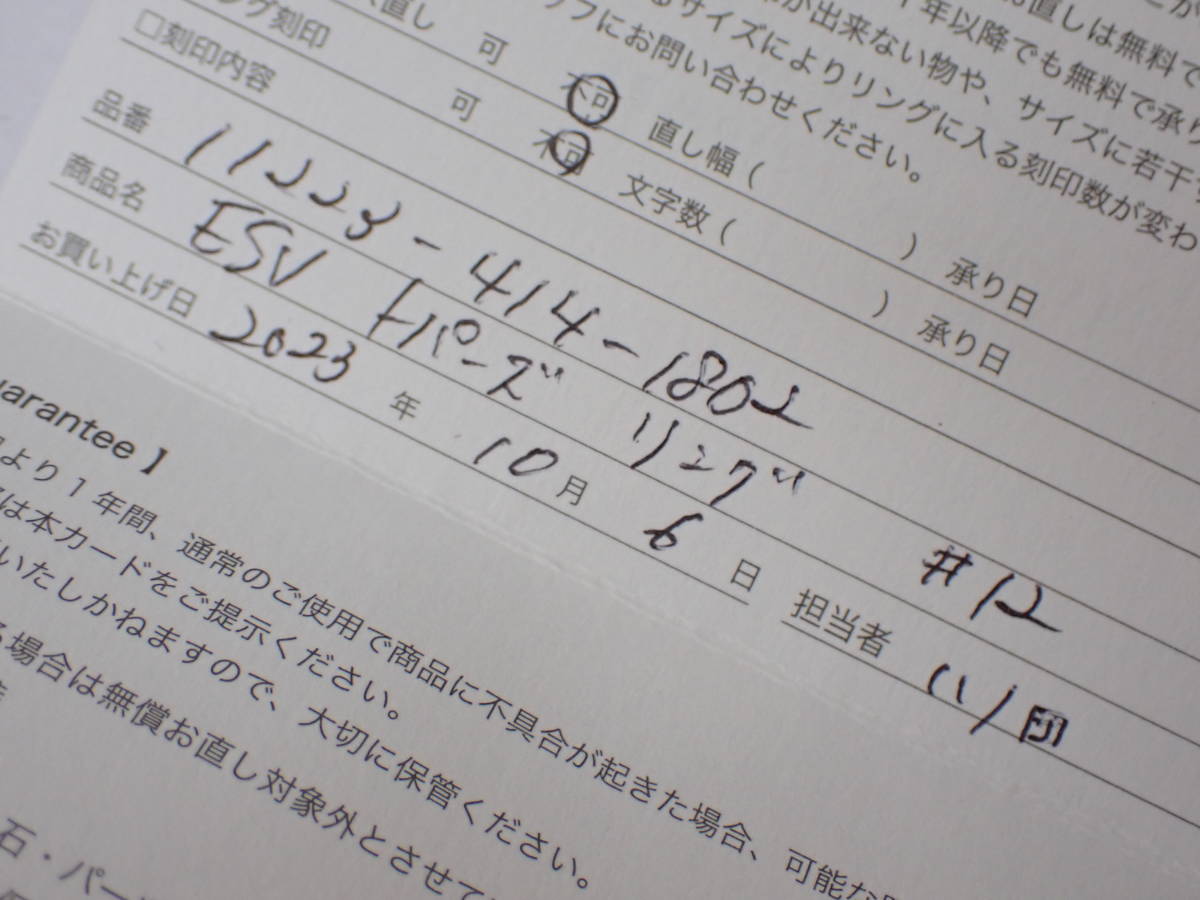 お直しは無料で
年以降でも無料で承り
が出来ない物や、サイズに若干
るサイズによりリングに入る刻印数が変わ
フにお問い合わせください。
直し 可 不可 直し幅 ( ) 承り日
ング刻印 可 不可 文字数 ( ) 承り日
□刻印内容
品番 11223-414-1802
商品名 ESV トパーズ リング #12
お買い上げ日 2023 年 10 月 6 日 担当者
uarantee 】
より 1 年間、通常のご使用で商品に不具合が起きた場合、可能な
は本カードをご提示ください。
いたしかねますので、大切に保管ください。
場合は無償お直し対象外とさせて
石・パー